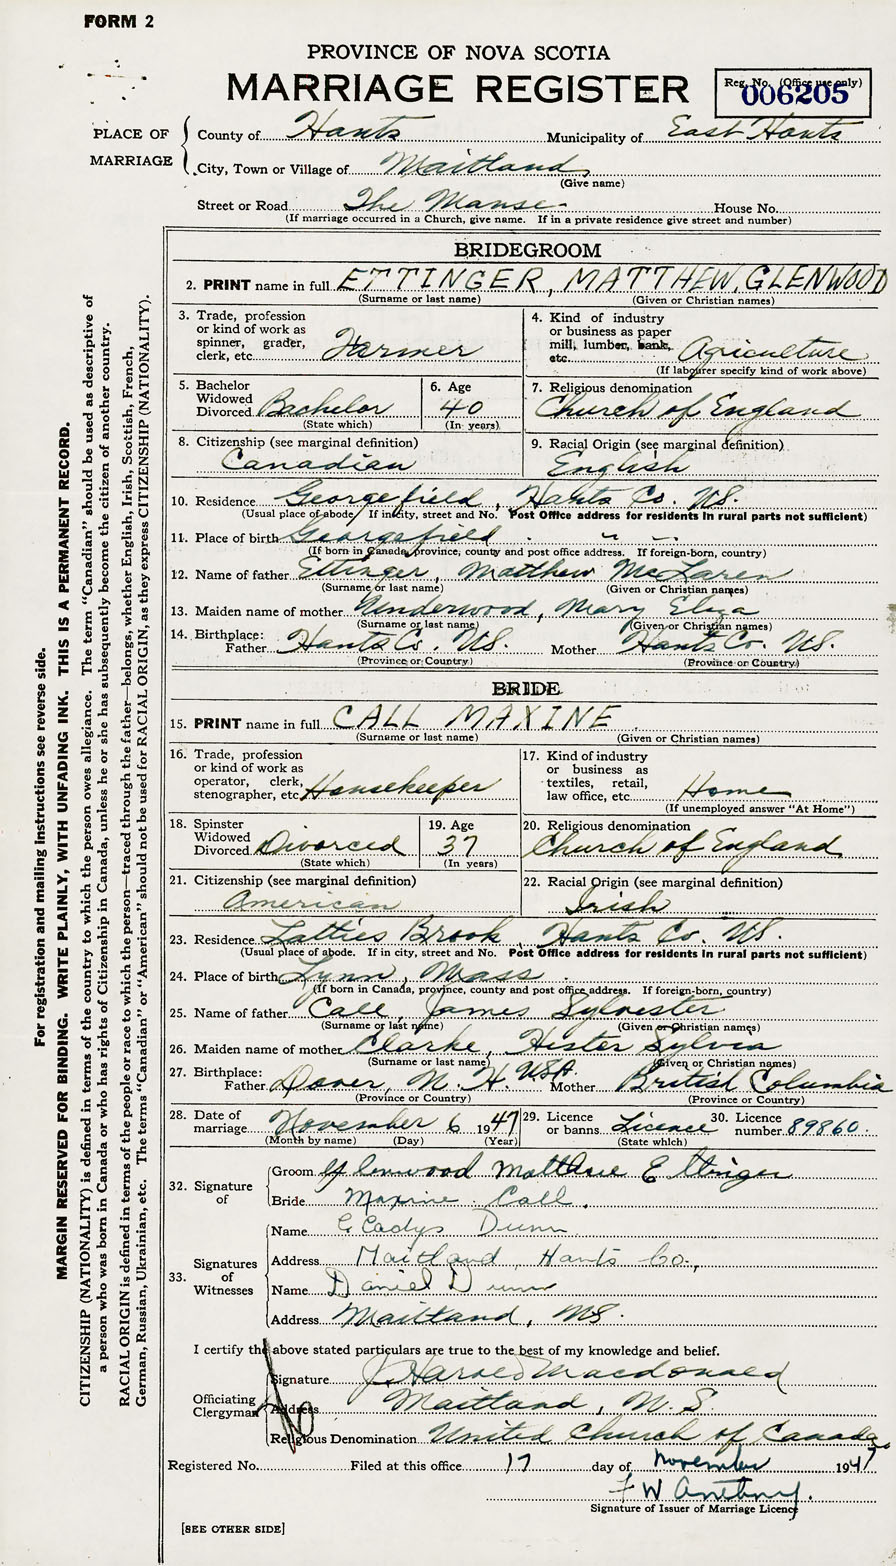 FORM 2
PROVINCE OF NOVA SCOTIA
MARRIAGE REGISTER
Reg. No. (Office use only)
006205
PLACE OF MARRIAGE
County of Hants Municipality of East Hants
City, Town or Village of Maitland
(Give name)
Street or Road The Manse House No.
(If marriage occurred in a Church, give name. If in a private residence give street and number)
BRIDEGROOM
2. PRINT name in full ETTINGER, MATTHEW GLENWOOD
(Surname or last name) (Given or Christian names)
3. Trade, profession or kind of work as spinner, grader, clerk, etc. Farmer
4. Kind of industry or business as paper mill, lumber, bank, etc. Agriculture
(If labourer specify kind of work above)
5. Bachelor Widowed Divorced Bachelor
(State which)
6. Age 40
(In years)
7. Religious denomination
Church of England
8. Citizenship (see marginal definition)
Canadian
9. Racial Origin (see marginal definition)
English
10. Residence Georgefield, Hants Co. NS.
(Usual place of abode. If in city, street and No. Post Office address for residents in rural parts not sufficient)
11. Place of birth Georgefield " "
(If born in Canada, province, county and post office address. If foreign-born, country)
12. Name of father Ettinger, Matthew McLaren
(Surname or last name) (Given or Christian names)
13. Maiden name of mother Underwood, Mary Eliza
(Surname or last name) (Given or Christian names)
14. Birthplace: Father Hants Co. NS. Mother Hants Co. NS.
(Province or Country) (Province or Country)
BRIDE
15. PRINT name in full CALL MAXINE
(Surname or last name) (Given or Christian names)
16. Trade, profession or kind of work as operator, clerk, stenographer, etc. Housekeeper
17. Kind of industry or business as textiles, retail, law office, etc. Home
(If unemployed answer "At Home")
18. Spinster Widowed Divorced Divorced
(State which)
19. Age 37
(In years)
20. Religious denomination
Church of England
21. Citizenship (see marginal definition)
American
22. Racial Origin (see marginal definition)
Irish
23. Residence Latties Brook, Hants Co. NS.
(Usual place of abode. If in city, street and No. Post Office address for residents in rural parts not sufficient)
24. Place of birth Lynn, Mass
(If born in Canada, province, county and post office address. If foreign-born, country)
25. Name of father Call, James Sylvester
(Surname or last name) (Given or Christian names)
26. Maiden name of mother Clarke, Hester Sylvia
(Surname or last name) (Given or Christian names)
27. Birthplace: Father Dover, N. H. USA. Mother British Columbia
(Province or Country) (Province or Country)
28. Date of marriage November 6 1947
(Month by name) (Day) (Year)
29. Licence or banns Licence
(State which)
30. Licence number 89860
32. Signature of
Groom Glenwood Matthew Ettinger
Bride Maxine Call
33. Signatures of Witnesses
Name Gladys Dunn
Address Maitland, Hants Co.,
Name Daniel Dunn
Address Maitland, NS.
I certify the above stated particulars are true to the best of my knowledge and belief.
Officiating Clergyman
Signature J. Harold Macdonald
Address Maitland, N.S
Religious Denomination United Church of Canada
Registered No. Filed at this office 17 day of November 1947
F W Anthony.
Signature of Issuer of Marriage Licence
[SEE OTHER SIDE]
For registration and mailing instructions see reverse side.
MARGIN RESERVED FOR BINDING. WRITE PLAINLY, WITH UNFADING INK. THIS IS A PERMANENT RECORD.
CITIZENSHIP (NATIONALITY) is defined in terms of the country to which the person owes allegiance. The term "Canadian" should be used as descriptive of
a person who was born in Canada or who has rights of Citizenship in Canada, unless he or she has subsequently become the citizen of another country.
RACIAL ORIGIN is defined in terms of the people or race to which the person—traced through the father—belongs, whether English, Irish, Scottish, French,
German, Russian, Ukrainian, etc. The terms "Canadian" or "American" should not be used for RACIAL ORIGIN, as they express CITIZENSHIP (NATIONALITY).